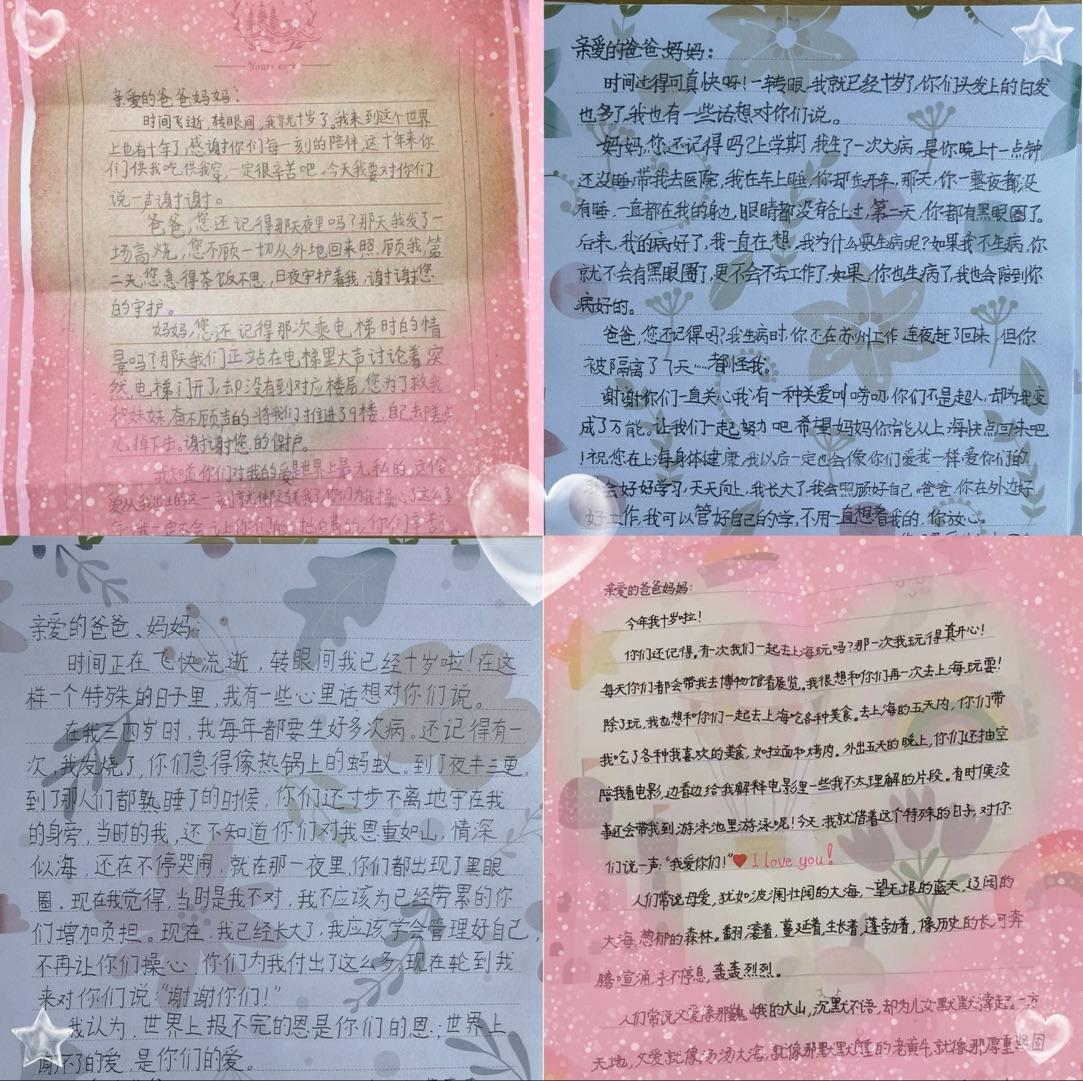 Yours ever
亲爱的爸爸妈妈：
时间飞逝,转眼间,我就十岁了。我来到这个世界
上也有十年了,感谢你们每一刻的陪伴,这十年来你
们供我吃,供我穿,一定很辛苦吧。今天我要对你们
说一声谢谢。
爸爸,您还记得那天夜里吗？那天我发了一
场高烧,您不顾一切从外地回来照顾我,第
二天,您急得茶饭不思,日夜守护着我,谢谢您
的守护。
妈妈,您还记得那次乘电梯时的情
景吗？那天我们正站在电梯里大声讨论着,突
然,电梯门开了,却没有到对应楼层,您为了救我
和妹妹,奋不顾身的将我们推进了9楼,自己去差点
儿掉下去。谢谢您的保护。
我知道你们对我的爱是世界上最无私的,这份
爱从我出生的这一刻就伴随着我了,你们为我操心了这么多
年,我一定不会让你们的
亲爱的爸爸、妈妈：
时间过得可真快呀!一转眼,我就已经十岁了,你们头发上的白发
也多了,我也有一些话想对你们说。
妈妈,您还记得吗?上学期,我生了一次大病,是你晚上十一点钟
还没睡,带我去医院,我在车上睡,你却在开车,那天,你一整夜都没
有睡,一直都在我的身边,眼睛都没合上过,第二天,你都有黑眼圈了。
后来,我的病好了,我一直在想,我为什么要生病呢?如果我不生病,你
就不会有黑眼圈了,更不会不去工作了,如果,你也生病了,我也会陪到你
病好的。
爸爸,您还记得吗?我生病时,你还在苏州工作,连夜赶了回来,但你
被隔离了7天……都怪我。
谢谢你们一直关心我,有一种关爱叫唠叨,你们不是超人,却为我变
成了万能。让我们一起努力吧,希望妈妈你能从上海快点回来吧
!祝您在上海身体健康,我以后一定也会像你们爱我一样爱你们的
我会好好学习,天天向上,我长大了,我会照顾好自己。爸爸,你在外边好
好工作,我可以管好自己的学,不用一直想着我的,你放心
亲爱的爸爸、妈妈：
时间正在飞快流逝,转眼间我已经十岁啦!在这
样一个特殊的日子里,我有一些心里话想对你们说。
在我三四岁时,我每年都要生好多次病。还记得有一
次,我发烧了,你们急得像热锅上的蚂蚁。到了夜半三更,
到了那人们都熟睡了的时候,你们还寸步不离地守在我
的身旁,当时的我,还不知道你们对我恩重如山,情深
似海,还在不停哭闹,就在那一夜里,你们都出现了黑眼
圈。现在我觉得,当时是我不对,我不应该为已经劳累的你
们增加负担。现在,我已经长大了,我应该学会管理好自己,
不再让你们操心,你们为我付出了这么多,现在轮到我
来对你们说:“谢谢你们!”
我认为,世界上报不完的恩是你们的恩;世界上
谢不了的爱,是你们的爱。
亲爱的爸爸妈妈:
今年我十岁啦!
你们还记得,有一次我们一起去上海玩吗?那一次我玩得真开心!
每天你们都会带我去博物馆看展览,我很想和你们再一次去上海玩耍!
除了玩,我也想和你们一起去上海吃各种美食。去上海的五天内,你们带
我吃了各种我喜欢的美食,如拉面和烤肉。外出五天的晚上,你们还抽空
陪我看电影,边看边给我解释电影里一些我不大理解的片段。有时候没
事还会带我到游泳池里游泳呢!今天,我就借着这个特殊的日子,对你
们说一声,“我爱你们!”❤I love you!
人们常说母爱,犹如波澜壮阔的大海,一望无垠的蓝天,辽阔的
大海,葱郁的森林。翻滚着,蔓延着,生长着,蓬勃着,像历史的长河奔
腾喧涌,永不停息,轰轰烈烈。
人们常说父爱像那巍峨的大山,沉默不语,却为儿女默默撑起一方
天地,父爱就像汤汤大海,就像那默默耕耘的老黄牛,就像那厚重坚固